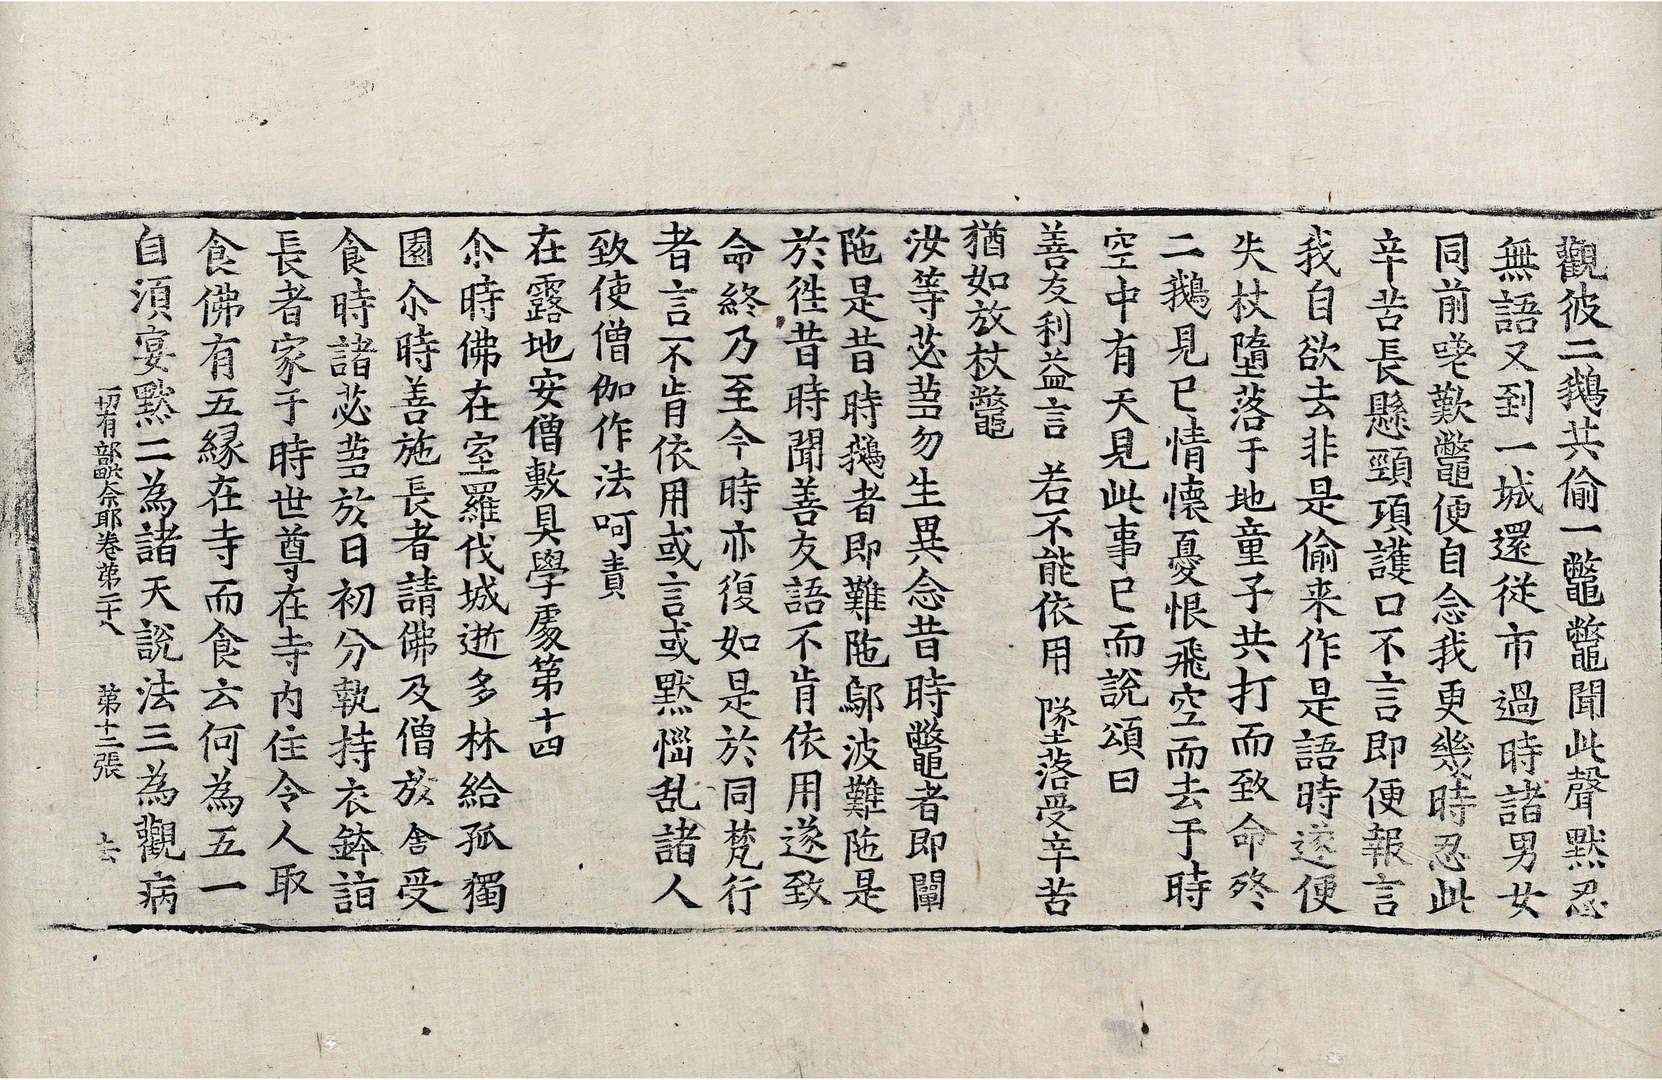 觀彼二鵝共偷一鼈鼈聞此聲默忍
無語又到一城還從市過時諸男女
同前嗟歎鼈便自念我更幾時忍此
辛苦長懸頸項護口不言即便報言
我自欲去非是偷来作是語時遂便
失杖墮落于地童子共打而致命終
二鵝見已情懷憂恨飛空而去于時
空中有天見此事已而說頌曰
善友利益言 若不能依用 墜落受辛苦
猶如放杖鼈
汝等苾芻勿生異念昔時鼈者即闡
陁是昔時鵝者即難陁鄔波難陁是
於徃昔時聞善友語不肯依用遂致
命終乃至今時亦復如是於同梵行
者言不肯依用或言或默惱乱諸人
致使僧伽作法呵責
在露地安僧敷具學處第十四
尒時佛在室羅伐城逝多林給孤獨
園尒時善施長者請佛及僧於舍受
食時諸苾芻於日初分執持衣鉢詣
長者家于時世尊在寺内住令人取
食佛有五緣在寺而食云何為五一
自須宴默二為諸天說法三為觀病
一切有部毗奈耶卷第二十八 第十二張 去